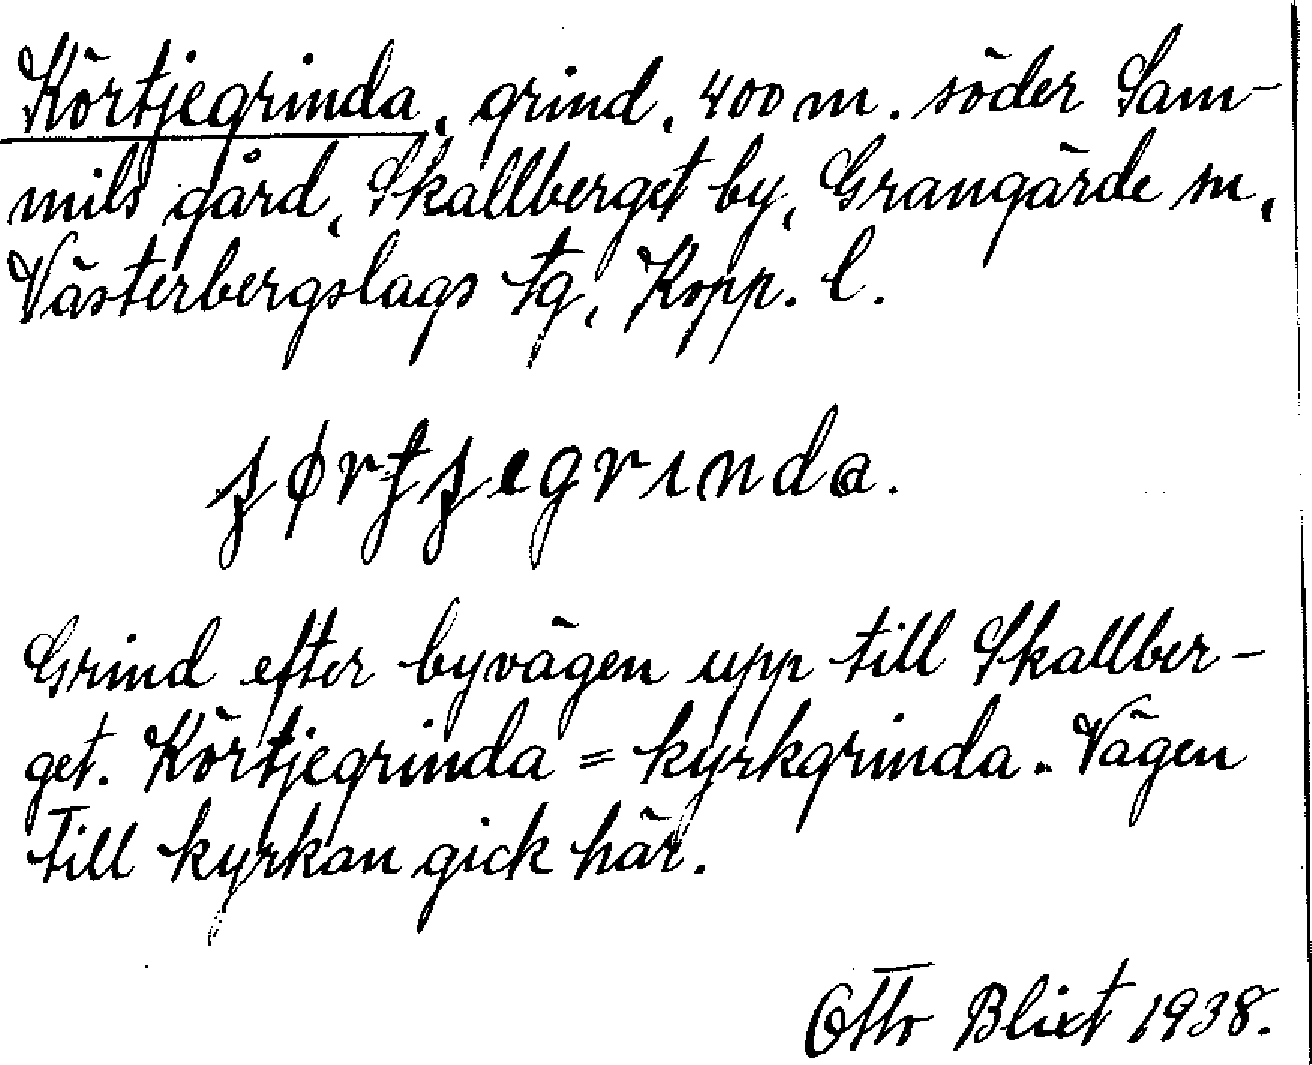 Körtjegrinda, grind, 400 m. söder Sam-
mils gård, Skallberget by, Grangärde sn,
Västerbergslags tg, Kopp. l.
grinda.
Grind efter byvägen upp till Skallber-
get. Körtjegrinda = kyrkgrinda. Vägen
till kyrkan gick här.
Otto Blixt 1938.